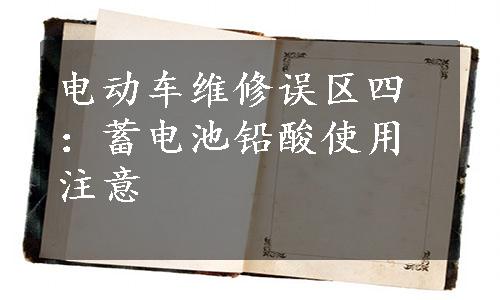 电动车维修误区四
：蓄电池铅酸使用
注意